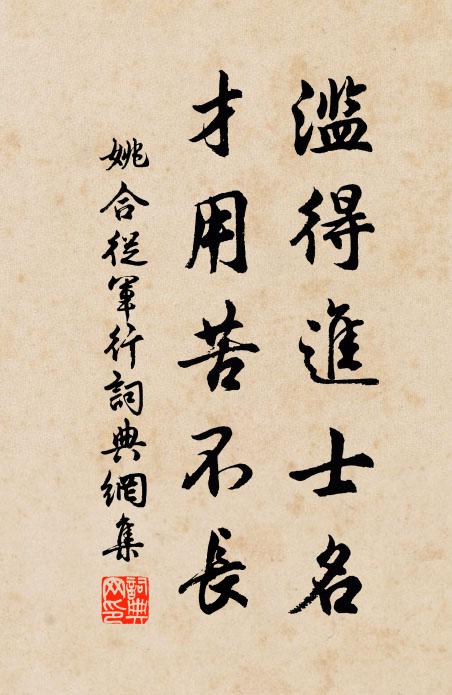 濫得進士名
才用苦不長
姚合從軍行詞典網集
詞典
网印